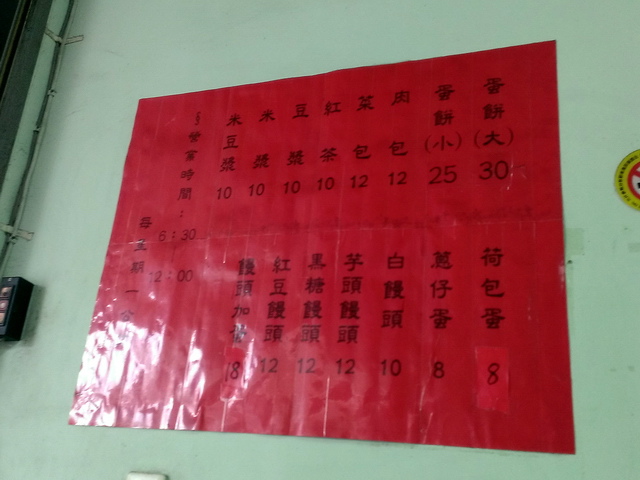 蛋餅(大) 30
蛋餅(小) 25
肉包 12
菜包 12
紅茶 10
豆漿 10
米漿 10
米豆漿 10
荷包蛋 8
蔥仔蛋 8
白饅頭 10
芋頭饅頭 12
黑糖饅頭 12
紅豆饅頭 12
饅頭加蛋 18
§營業時間:
6:30
12:00
每星期一公